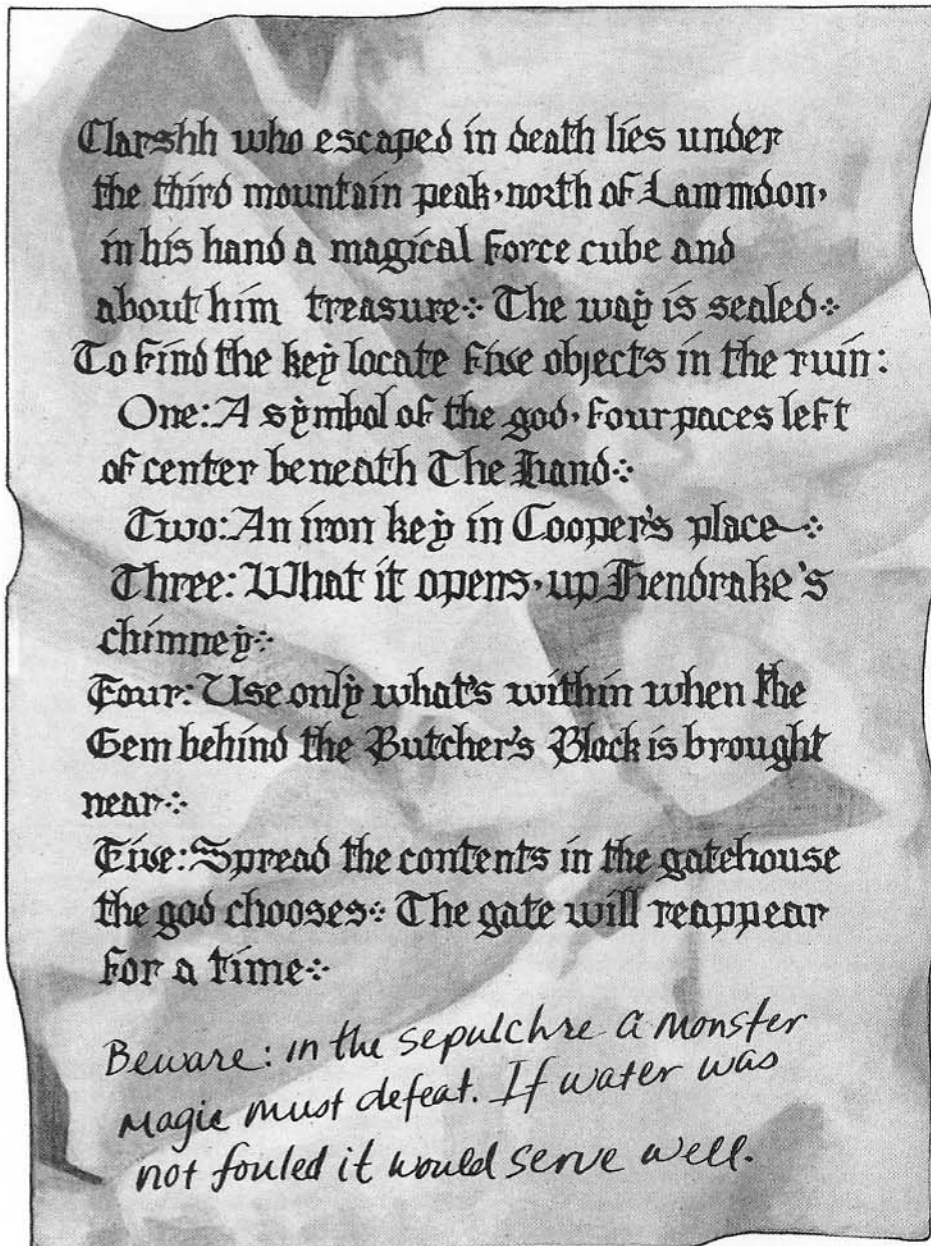 Clarshh who escaped in death lies under
the third mountain peak, north of Lammdon,
in his hand a magical force cube and
about him treasure⁘ The way is sealed⁘
To find the key locate five objects in the ruin:
One: A symbol of the god, four paces left
of center beneath The Hand⁘
Two: An iron key in Cooper's place⁘
Three: What it opens, up Hendrake's
chimney⁘
Four: Use only what's within when the
Gem behind the Butcher's Block is brought
near⁘
Five: Spread the contents in the gatehouse
the god chooses⁘ The gate will reappear
for a time⁘
Beware: in the sepulchre a monster
magic must defeat. If water was
not fouled it would serve well.